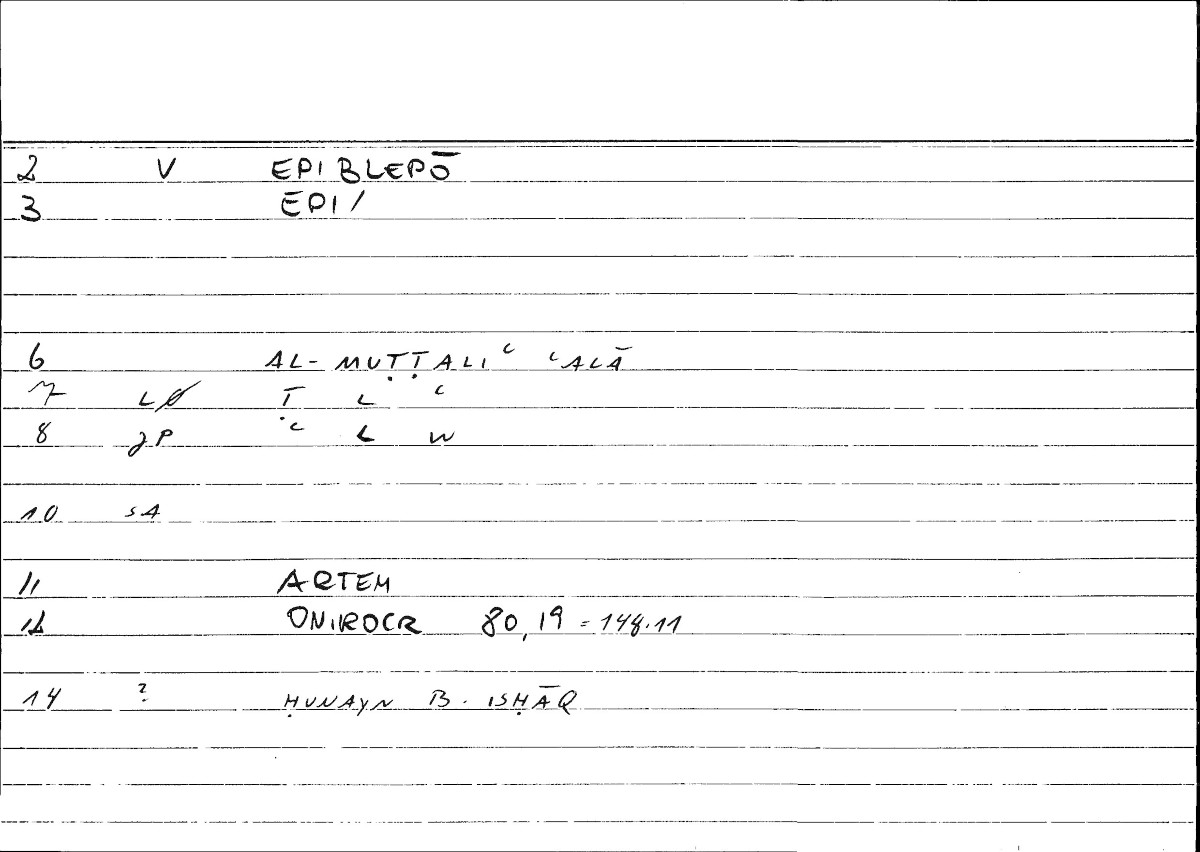 2 V EPIBLEPŌ
3 EPI/
6 AL-MUṬṬALIʿ ʿALĀ
7 LØ Ṭ L ʿ
8 JP ʿ L W
10 SA
11 ARTEM
12 ONIROCR 80,19 = 148.11
14 ? ḤUNAYN B. ISḤĀQ